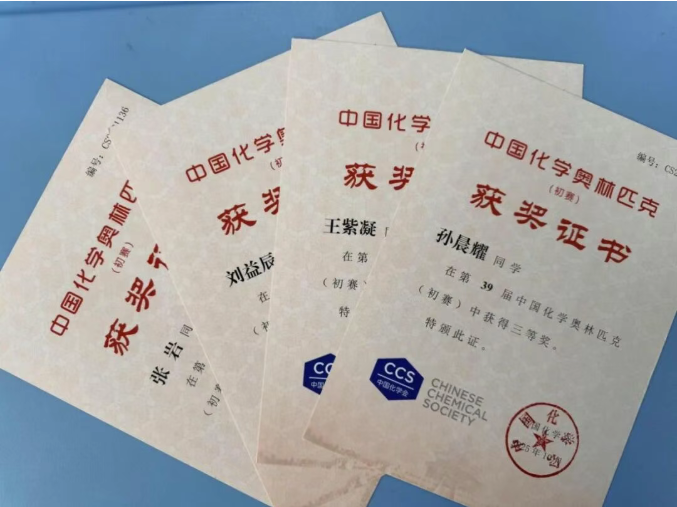 编号: CS
1136
中国化学奥林匹克
(初赛)
获奖
张岩同
在第
(初
中国化学奥林匹
(初赛)
获奖
刘益辰
在
(初
中国化学
获奖
王紫凝
在第
(初赛)
特
CC
中国化
编号: CS
中国化学奥林匹克
(初赛)
获奖证书
孙晨耀 同学
在第 39 届中国化学奥林匹克
(初赛) 中获得三等奖。
特颁此证。
CCS
中国化学会
CHINESE
CHEMICAL
SOCIETY